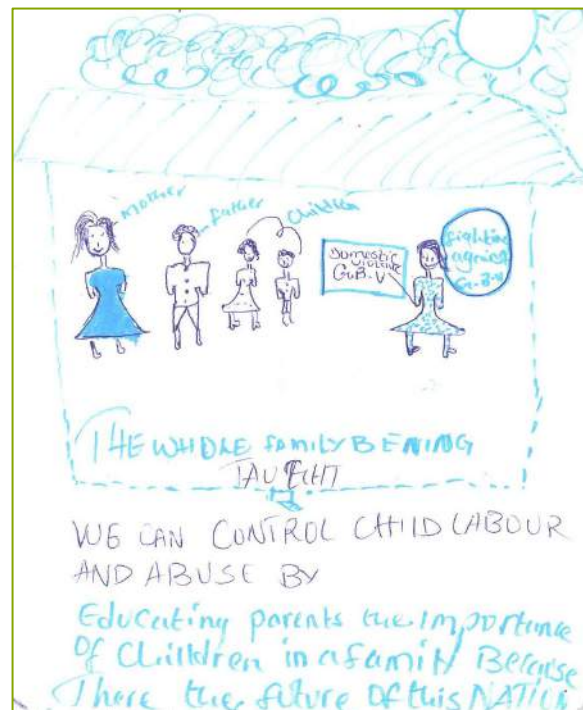 Mother
father
Children
Domestic
violence
G.B.V
fighting
against
G.B.V
THE WHOLE family BENING
TAUGHT
WE CAN CONTROL CHILD LABOUR
AND ABUSE BY
Educating parents the importance
Of Children in a family Because
There the future Of this NATION